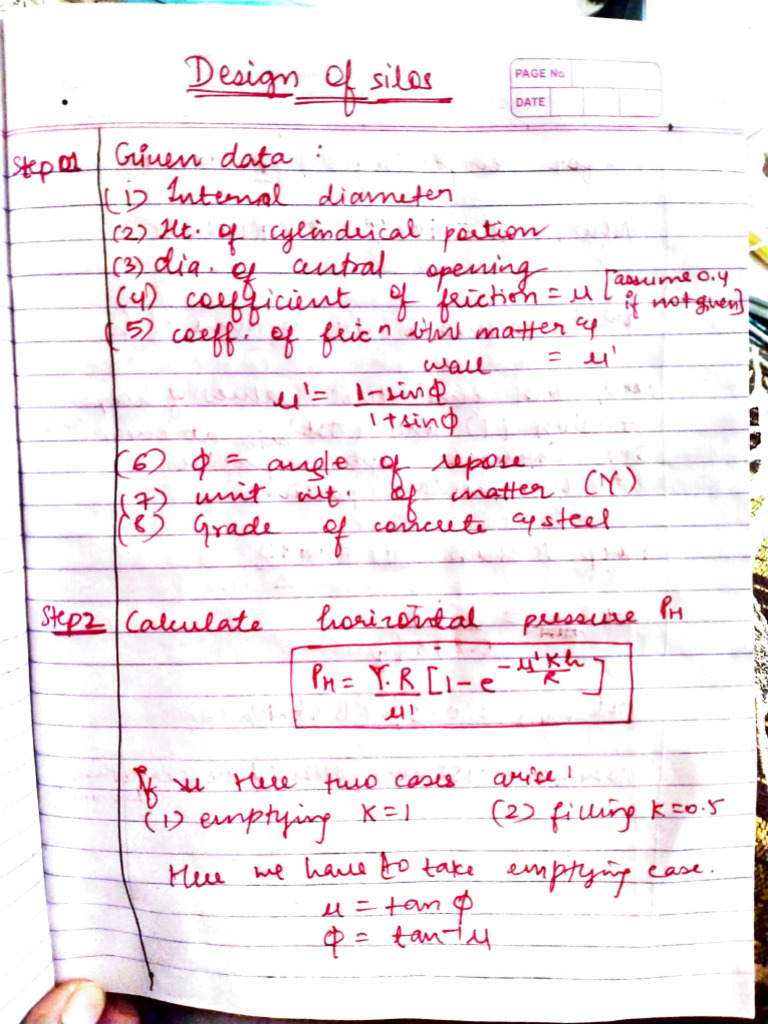 Design of silos
PAGE No
DATE
Step 01 Given data :
(1) Internal diameter
(2) Ht. of cylindrical portion
(3) dia. of central opening
(4) coefficient of friction = μ [assume 0.4 if not given]
(5) coeff. of fricn b/w matter &
wall = μ'
μ' = 1-sinφ
1+sinφ
(6) φ = angle of repose
(7) unit wt. of matter (γ)
(8) Grade of concrete & steel
Step 2 Calculate horizontal pressure PH
PH = γ.R/μ' [1-e^-μ'Kh/R]
Here two cases arise!
(1) emptying K=1 (2) filling K=0.5
Here we have to take emptying case.
μ = tan φ
φ = tan-1 μ